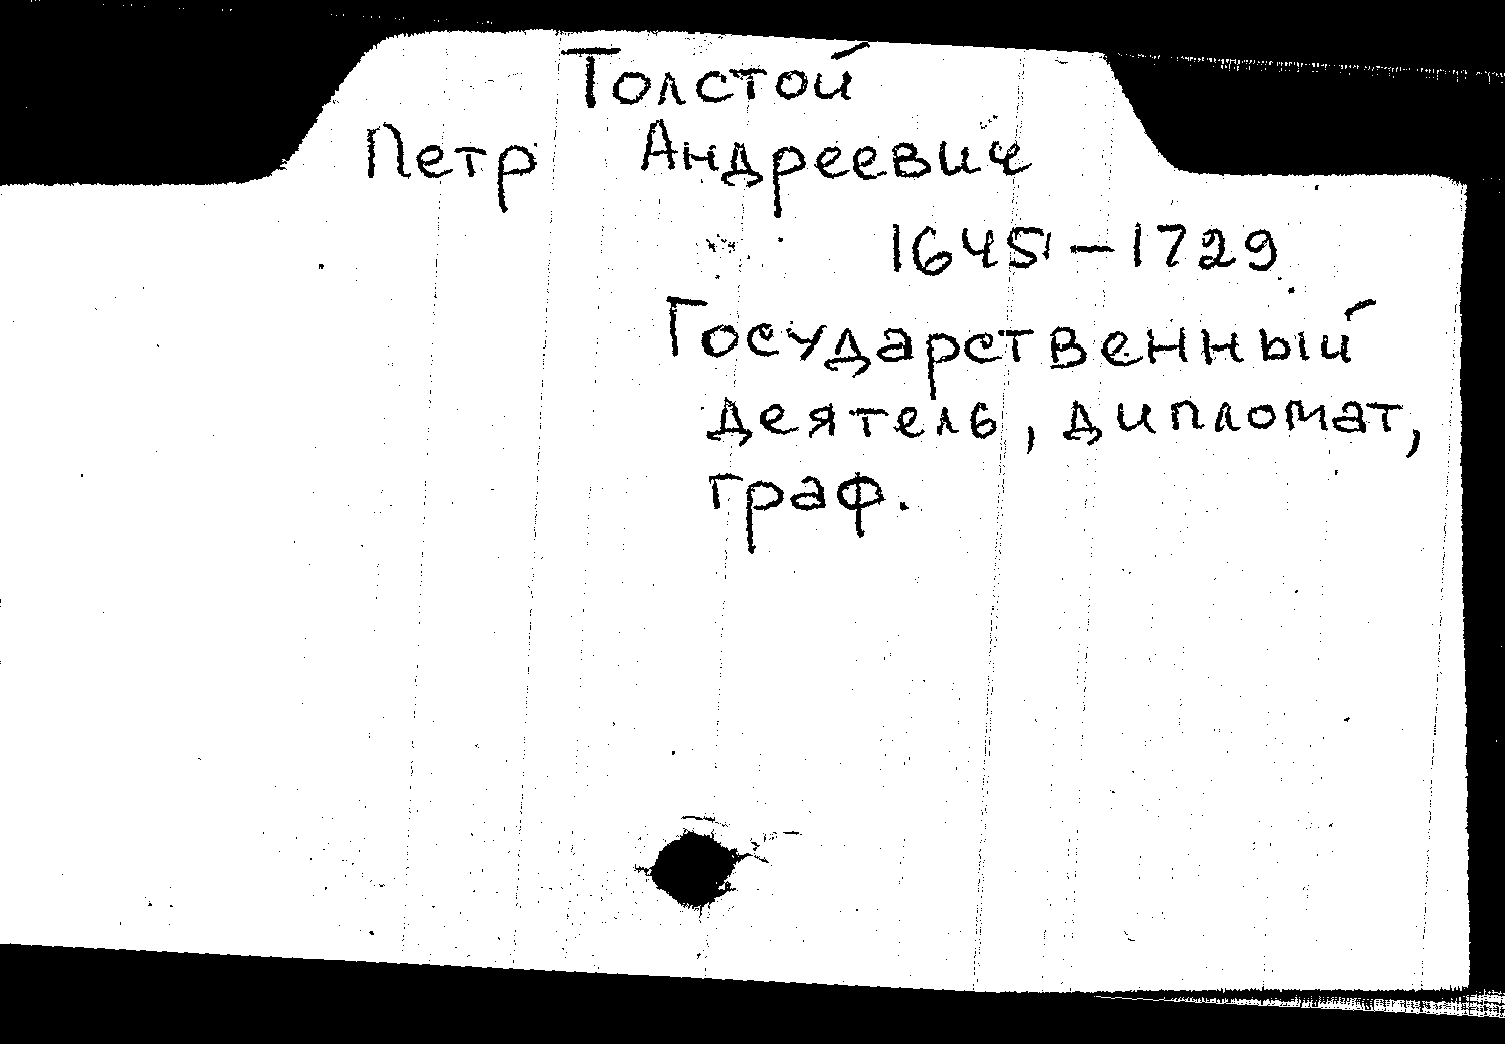 Толстой
Петр Андреевич
1645-1729
Государственный
деятель, дипломат,
граф.